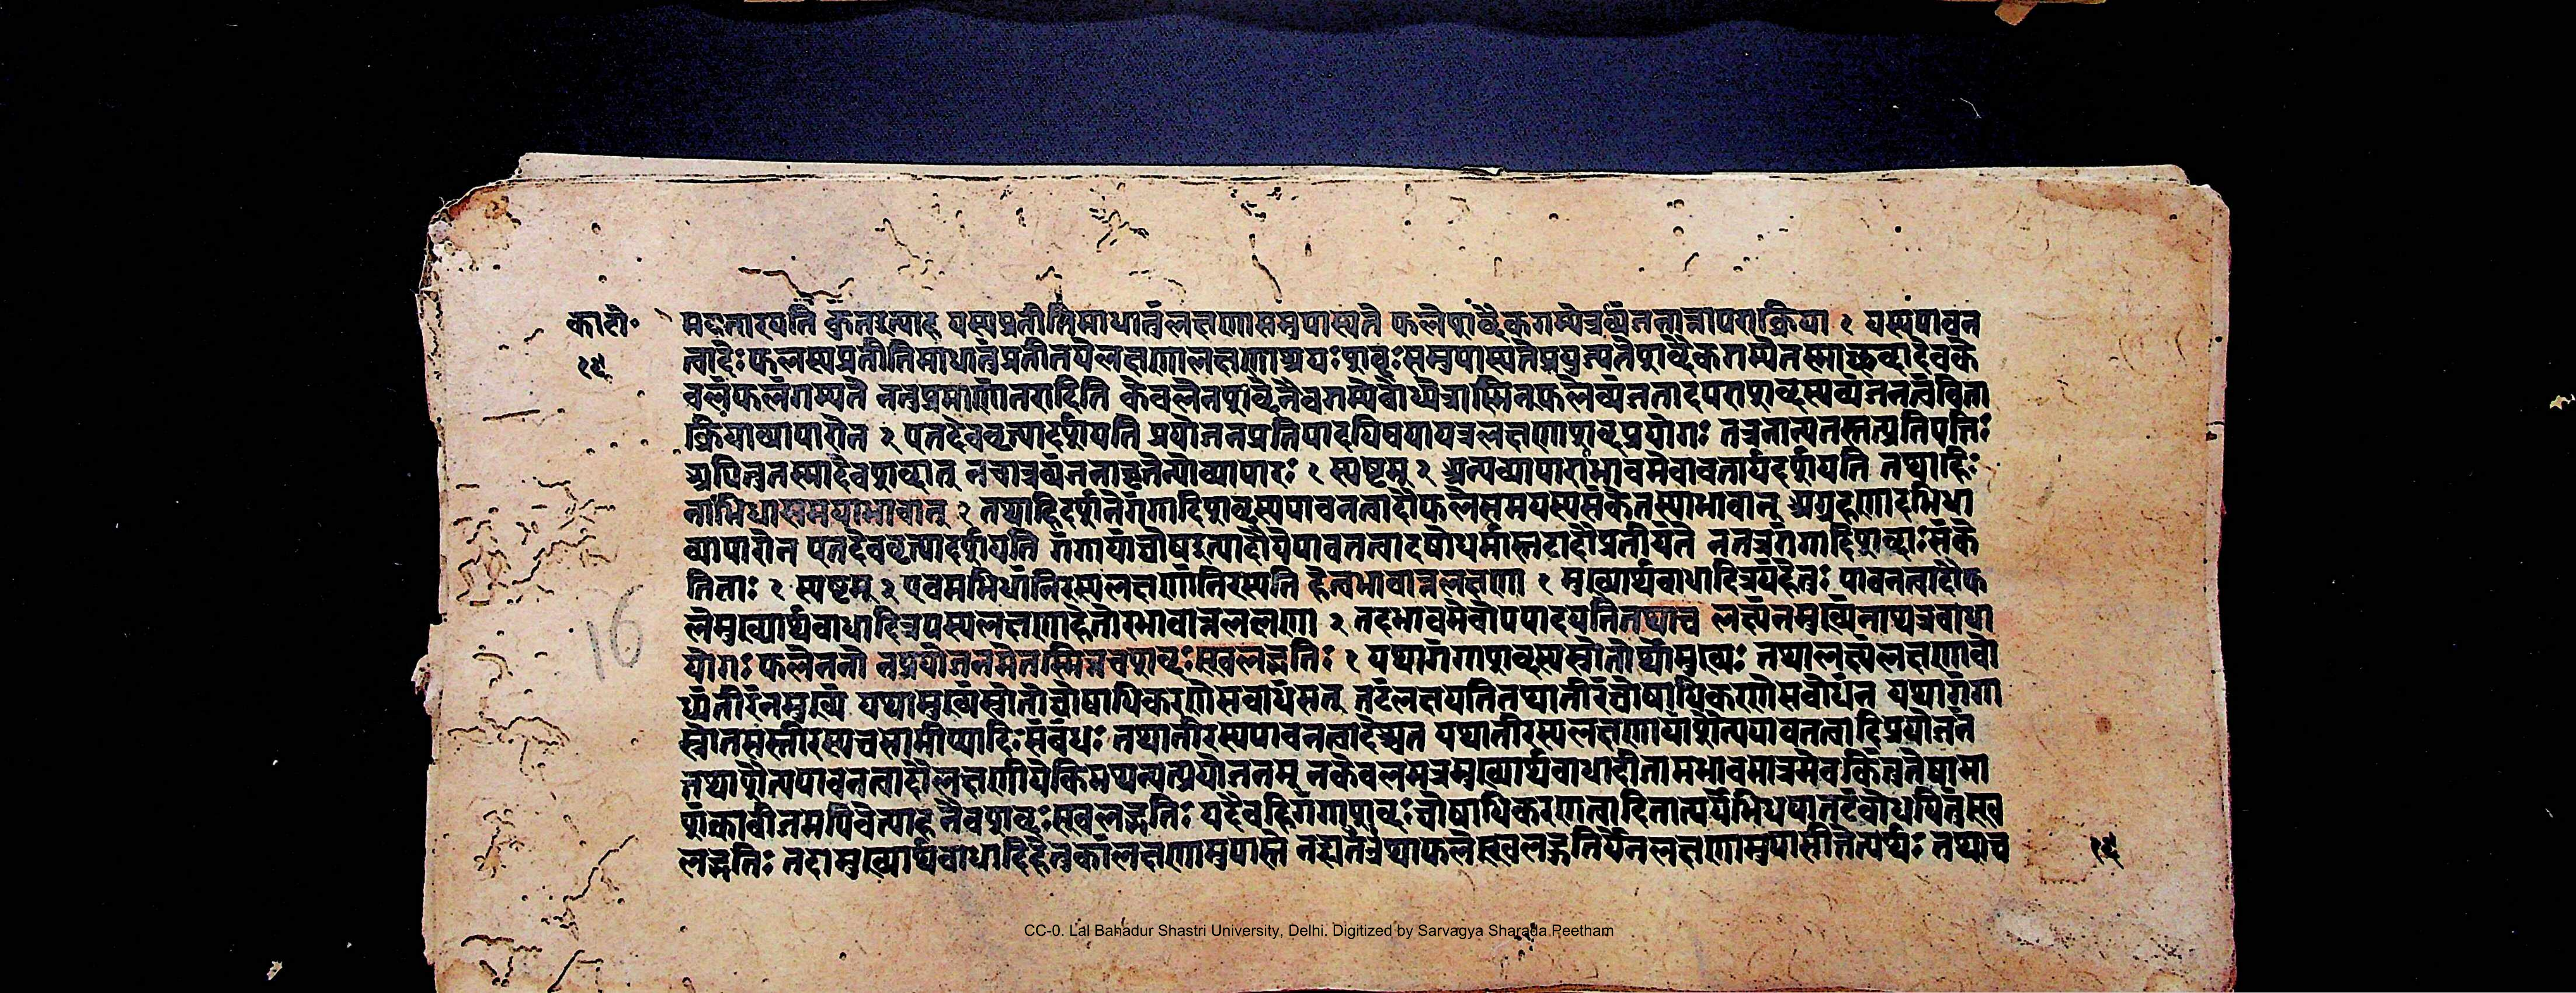 का॰टी॰ मवतारयति कुतइत्याह यस्यप्रतीतिमाधातुंलक्षणासमुपास्यते फलेशब्दैकगम्येत्रव्यंजनान्नापराक्रिया १ यस्यपावन
१६ त्वादेः फलस्यप्रतीतिमाधातुंप्रतीतयेलक्षणालक्षणाश्रयः शब्दः समुपास्यतेप्रयुज्यतेशब्दैकगम्येतस्माच्छब्दादेवके
वलंफलंगम्यते ननुप्रमाणांतरादिति केवलेनशब्देनैवगम्येबोध्येत्रास्मिन्फलेव्यंजनादपराशब्दस्यव्यंजनत्वंविना
क्रियाव्यापारोन २ एतदेववृत्त्यादर्शयति प्रयोजनप्रतिपादयिषयायत्रलक्षणाशब्दप्रयोगः तत्रनान्यतस्तत्प्रतिपत्तिः
अपितुतस्मादेवशब्दात् नचात्रव्यंजनादृतेन्योव्यापारः १ स्पष्टम् २ अन्यव्यापाराभावमेवावतार्यदर्शयति तथाहि
नाभिधासमयाभावात् २ तथाहिदर्शनेगंगादिशब्दस्यपावनत्वादौफलेसमयस्यसंकेतस्याभावात् अग्रहणादभिधा
व्यापारोन एतदेववृत्त्यादर्शयति गंगायांघोषइत्यादौयेपावनत्वादयोधर्मास्तटादौप्रतीयंते नतत्रगंगादिशब्दाः संके
तिताः १ स्पष्टम् २ एवमभिधांनिरस्यलक्षणांनिरस्यति हेत्वभावान्नलक्षणा १ मुख्यार्थबाधादित्रयंहेतुः पावनत्वादौफ
लेमुख्यार्थबाधादित्रयस्यलक्षणाहेतोरभावान्नलक्षणा २ तदभावमेवोपपादयतितथाच लक्ष्यंनमुख्यंनाप्यत्रबाधो
योगः फलेननो नप्रयोजनमेतस्मिन्नचशब्दः स्खलद्गतिः १ यथागंगाशब्दस्यस्रोतोर्थोमुख्यः तथालक्ष्यंलक्षणाबो
ध्यंतीरंनमुख्यं यथामुख्यंस्रोतोघोषाधिकरणेसबाधंसत् तटंलक्षयतितथातीरंघोषाधिकरणेसबाधंन यथागंगा
स्रोतसस्तीरस्यचसामीप्यादिः संबंधः तथातीरस्यपावनत्वादेश्चन यथातीरस्यलक्षणायांशैत्यपावनत्वादिप्रयोजनं
तथाशैत्यपावनत्वादौलक्षणीयेकिमप्यन्यत्प्रयोजनम् नकेवलमत्रमुख्यार्थबाधादीनामभावमात्रमेव किंतुतेषामा
शंकाबीजमपिवेत्याह नैवशब्दः स्खलद्गतिः यदैवहिगंगाशब्दः घोषाधिकरणत्वादितात्पर्येभिधयातटंबोधयितुंस्ख
लद्गतिः तदामुख्यार्थबाधादिहेतुकांलक्षणामुपास्ते नह्येतत्तथाफलेस्खलद्गतिर्येनलक्षणामुपासीतेत्यर्थः तथाच १६
16
CC-0. Lal Bahadur Shastri University, Delhi. Digitized by Sarvagya Sharada Peetham